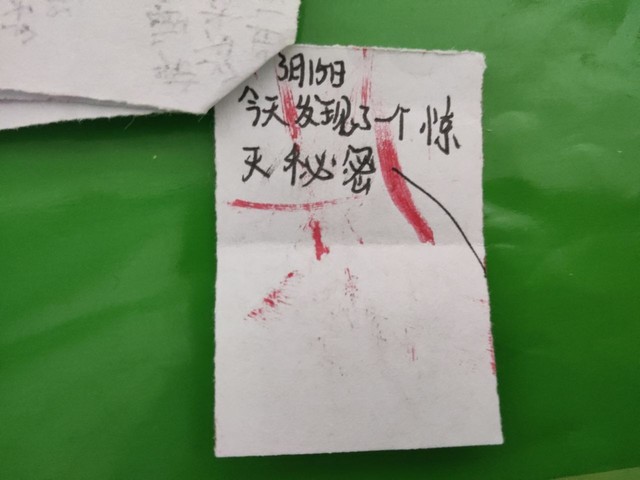 3月15日
今天发现了一个惊
天秘密